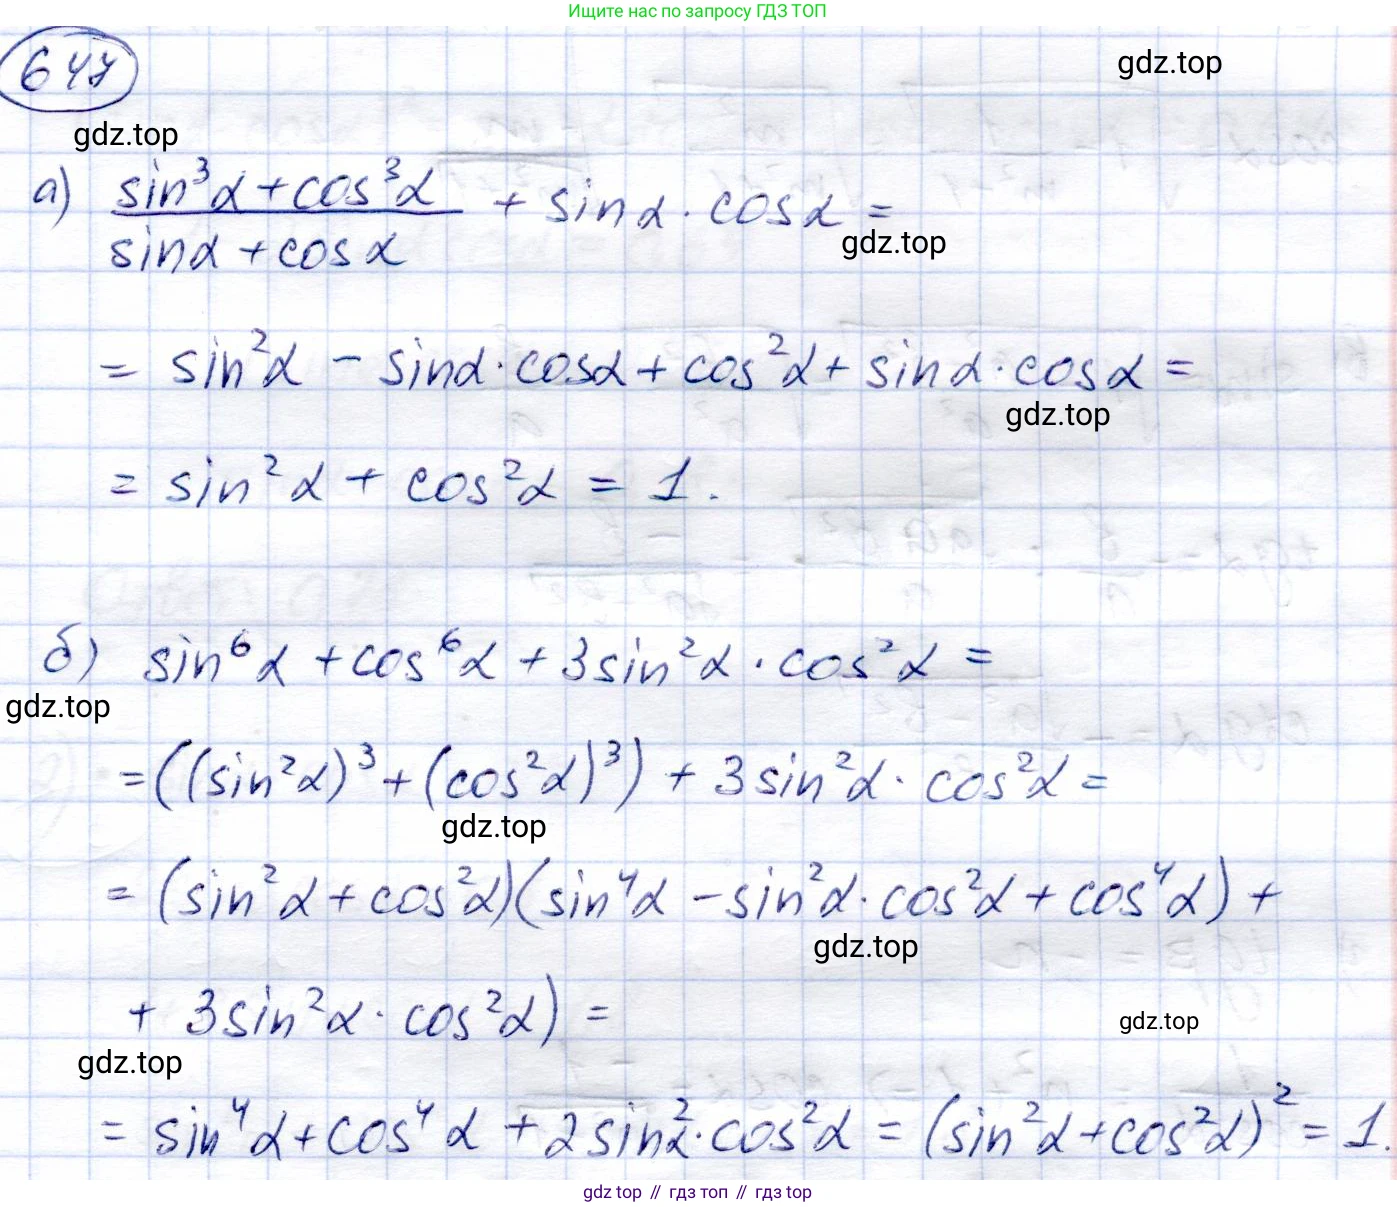 Ищите нас по запросу ГДЗ ТОП
647
gdz.top
gdz.top
а) (sin³α + cos³α)/(sinα + cosα) + sinα · cosα =
gdz.top
= sin²α - sinα · cosα + cos²α + sinα · cosα =
gdz.top
= sin²α + cos²α = 1.
б) sin⁶α + cos⁶α + 3sin²α · cos²α =
gdz.top
= ((sin²α)³ + (cos²α)³) + 3sin²α · cos²α =
gdz.top
= (sin²α + cos²α)(sin⁴α - sin²α · cos²α + cos⁴α) +
gdz.top
+ 3sin²α · cos²α) =
gdz.top
gdz.top
= sin⁴α + cos⁴α + 2sin²α · cos²α = (sin²α + cos²α)² = 1.
gdz top // гдз топ // гдз top